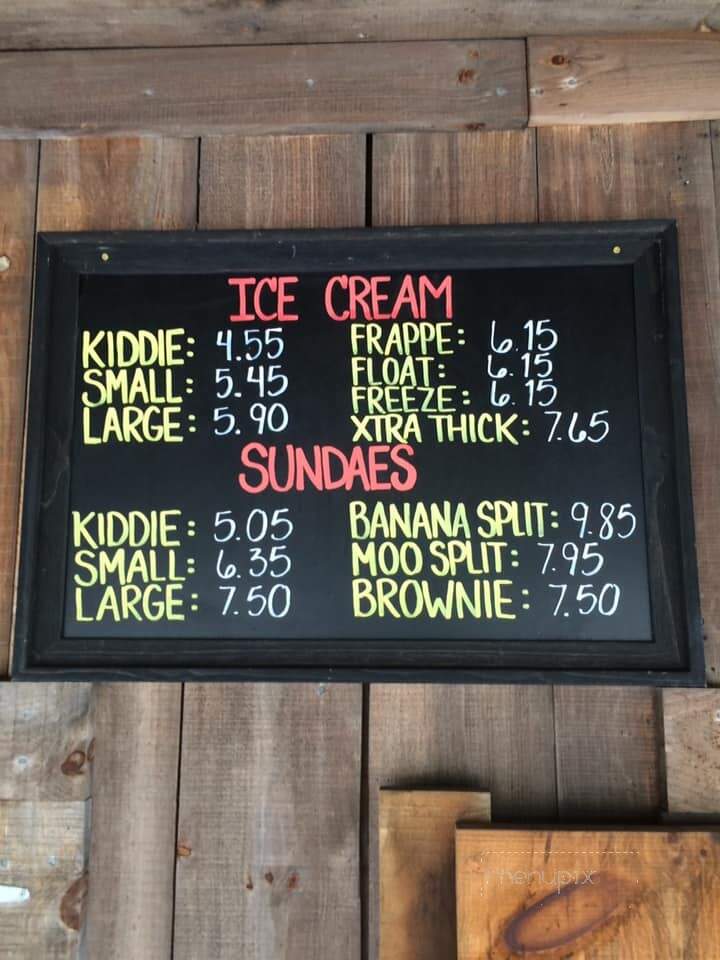 ICE CREAM
KIDDIE: 4.55
SMALL: 5.45
LARGE: 5.90
FRAPPE: 6.15
FLOAT: 6.15
FREEZE: 6.15
XTRA THICK: 7.65
SUNDAES
KIDDIE: 5.05
SMALL: 6.35
LARGE: 7.50
BANANA SPLIT: 9.85
MOO SPLIT: 7.95
BROWNIE: 7.50
menupix